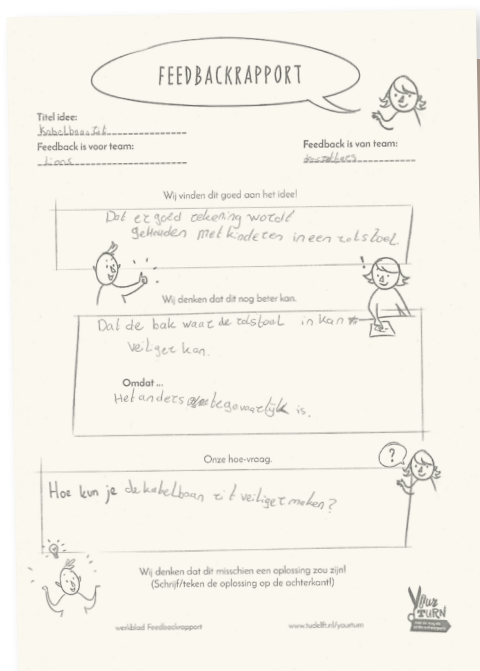 FEEDBACKRAPPORT
Titel idee:
Kabelbaanzit
Feedback is voor team:
Lions
Feedback is van team:
Wij vinden dit goed aan het idee!
Dat er goed rekening wordt
gehouden met kinderen in een rolstoel.
Wij denken dat dit nog beter kan.
Dat de bak waar de rolstoel in kan
veiliger kan.
Omdat ...
Het anders te gevaarlijk is.
Onze hoe-vraag.
Hoe kun je de kabelbaan zit veiliger maken?
Wij denken dat dit misschien een oplossing zou zijn!
(Schrijf/teken de oplossing op de achterkant!)
werkblad Feedbackrapport
www.tudelft.nl/yourturn
YOUR
TURN